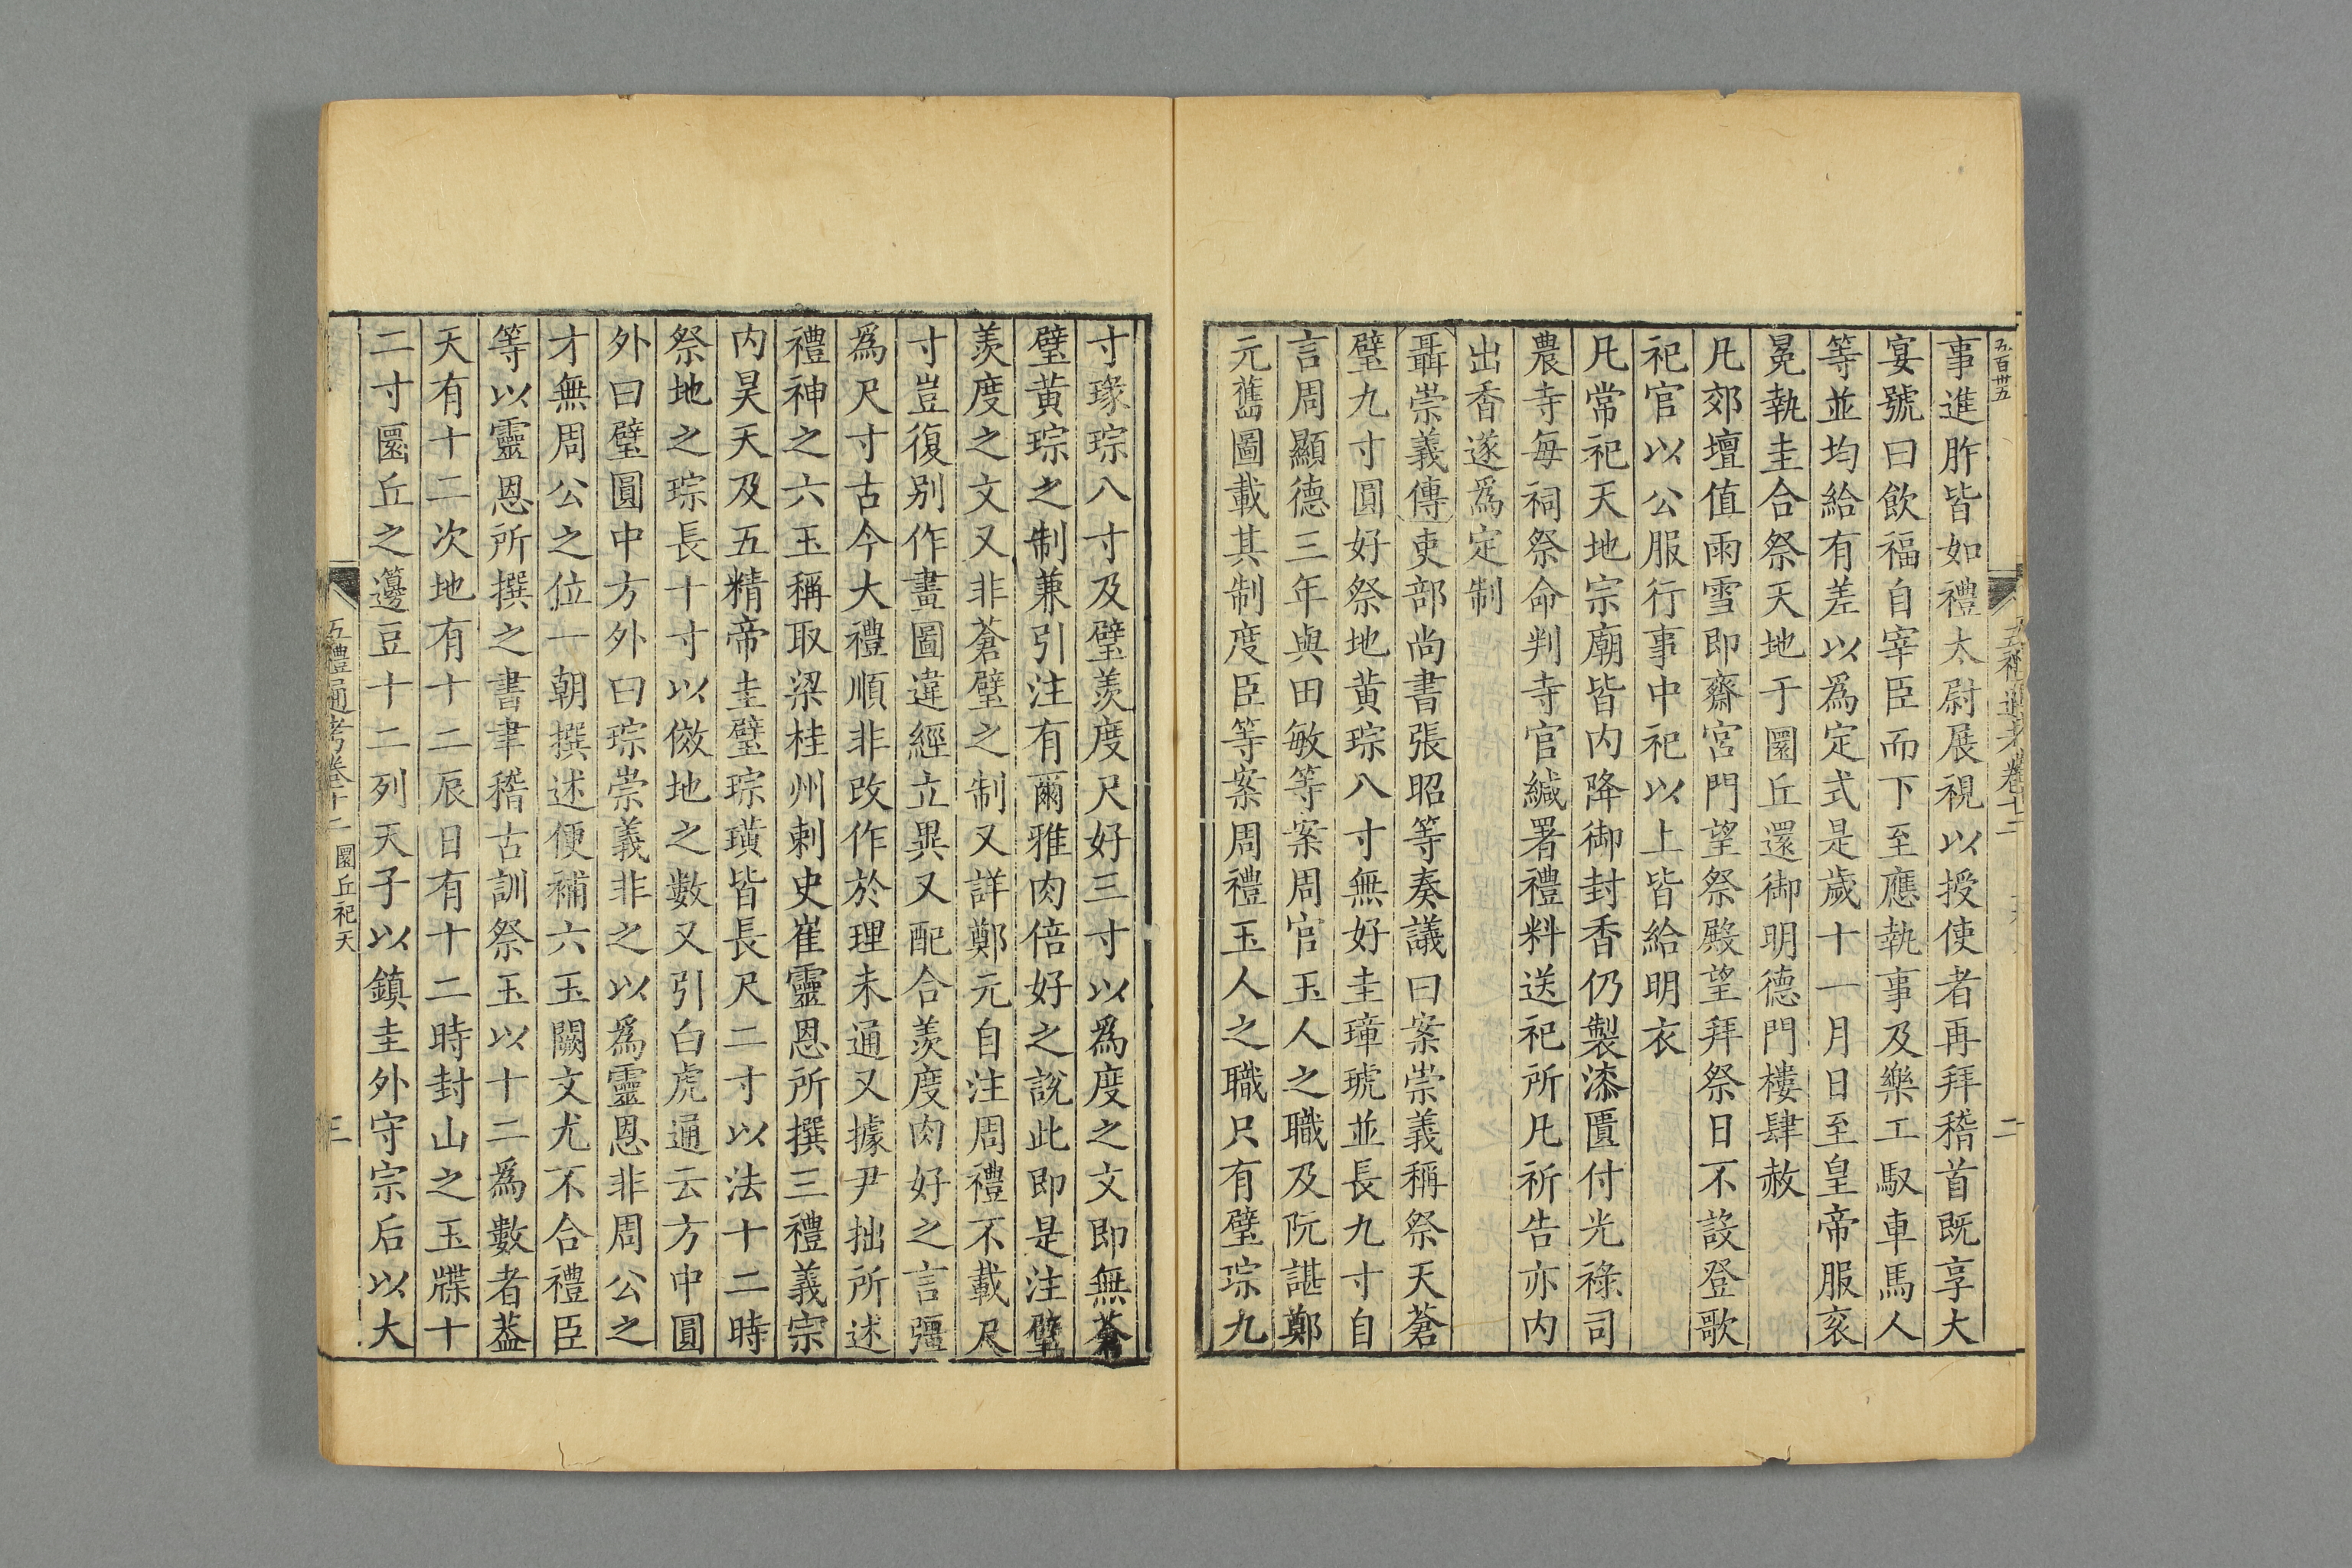 五百卅五
五禮通考卷十二
二
事進胙皆如禮太尉展視以授使者再拜稽首既享大
宴號曰飲福自宰臣而下至應執事及樂工馭車馬人
等並均給有差以爲定式是歲十一月日至皇帝服衮
冕執圭合祭天地于圜丘還御明德門樓肆赦
凡郊壇值雨雪即齋宮門望祭殿望拜祭日不設登歌
祀官以公服行事中祀以上皆給明衣
凡常祀天地宗廟皆内降御封香仍製漆匱付光祿司
農寺每祠祭命判寺官緘署禮料送祀所凡祈告亦内
出香遂爲定制
聶崇義傳吏部尚書張昭等奏議曰案崇義稱祭天蒼
璧九寸圓好祭地黄琮八寸無好圭璋琥並長九寸自
言周顯德三年與田敏等案周官玉人之職及阮諶鄭
元舊圖載其制度臣等案周禮玉人之職只有璧琮九
寸瑑琮八寸及璧羨度尺好三寸以爲度之文即無蒼
璧黄琮之制兼引注有爾雅肉倍好之說此即是注璧
羨度之文又非蒼璧之制又詳鄭元自注周禮不載尺
寸豈復别作畫圖違經立異又配合羨度肉好之言彊
爲尺寸古今大禮順非改作於理未通又據尹拙所述
禮神之六玉稱取梁桂州刺史崔靈恩所撰三禮義宗
内昊天及五精帝圭璧琮璜皆長尺二寸以法十二時
祭地之琮長十寸以傚地之數又引白虎通云方中圓
外曰璧圓中方外曰琮崇義非之以爲靈恩非周公之
才無周公之位一朝撰述便補六玉闕文尤不合禮臣
等以靈恩所撰之書聿稽古訓祭玉以十二爲數者葢
天有十二次地有十二辰日有十二時封山之玉牒十
二寸圜丘之籩豆十二列天子以鎮圭外守宗后以大
五禮通考卷十二 圜丘祀天
三